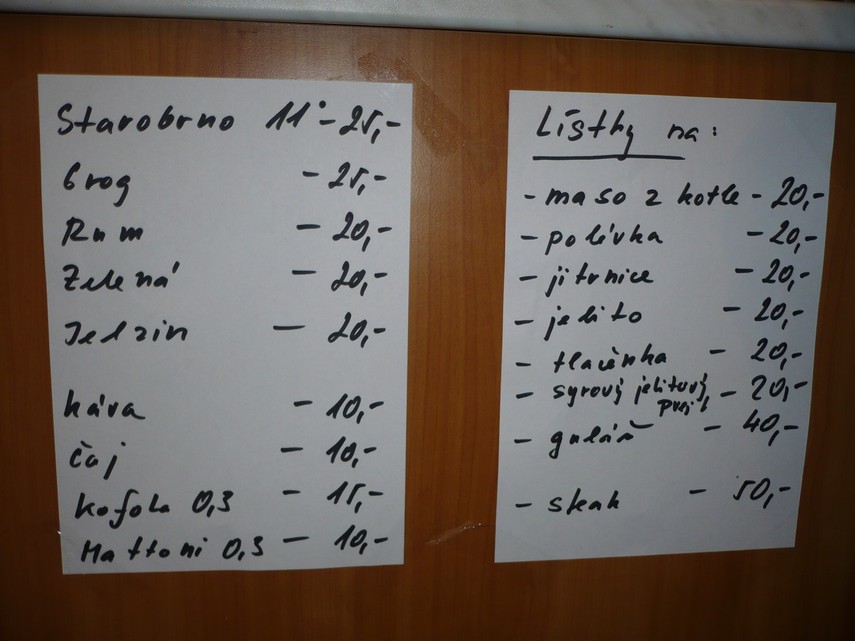 Starobrno 11° - 25,-
Grog - 25,-
Rum - 20,-
Zelená - 20,-
Jelzin - 20,-
káva - 10,-
čaj - 10,-
Kofola 0,3 - 15,-
Mattoni 0,3 - 10,-
Lístky na:
- maso z kotle - 20,-
- polévka - 20,-
- jitrnice - 20,-
- jelito - 20,-
- tlačenka - 20,-
- syrový jelitový - 20,-
- guláš - 40,-
- steak - 50,-